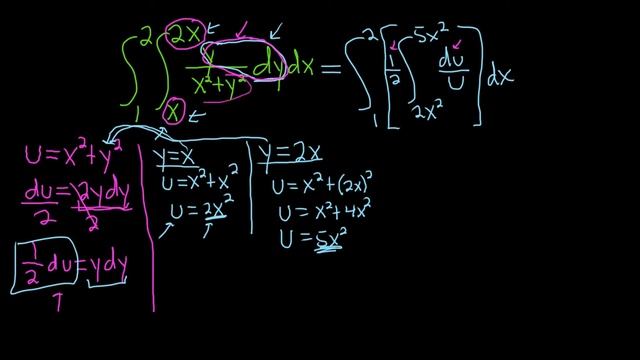 ∫₁² ∫ₓ²ˣ y/(x²+y²) dy dx = ∫₁² [ 1/2 ∫_{2x²}^{5x²} du/u ] dx
u = x²+y²
du/2 = 2ydy/2
1/2 du = ydy
y=x
u = x²+x²
u = 2x²
y=2x
u = x²+(2x)²
u = x²+4x²
u = 5x²